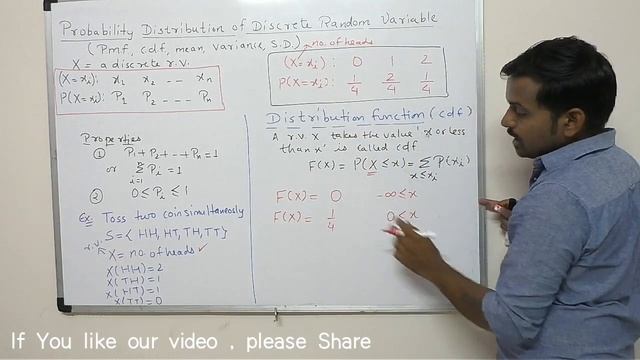 Probability Distribution of Discrete Random Variable
(Pmf, cdf, mean, variance, S.D.)
X = a discrete r.v.
(X=xi): x1 x2 --- xn
P(X=xi): P1 P2 ---- Pn
no. of heads
(X=xi): 0 1 2
P(X=xi): 1/4 2/4 1/4
Properties
① P1+P2+--+Pn=1
or n∑i=1 Pi=1
② 0≤Pi≤1
Ex: Toss two coin simultaneously
S={HH, HT, TH, TT}
r.v. X= no. of heads ✓
X(HH)=2
X(TH)=1
X(HT)=1
X(TT)=0
Distribution function (cdf)
A r.v. X takes the value 'x or less
than x' is called cdf
F(X)= P(X≤x)=∑x≤xi P(xi)
F(X)= 0 -∞≤x
F(X)= 1/4 0≤x
If You like our video , please Share